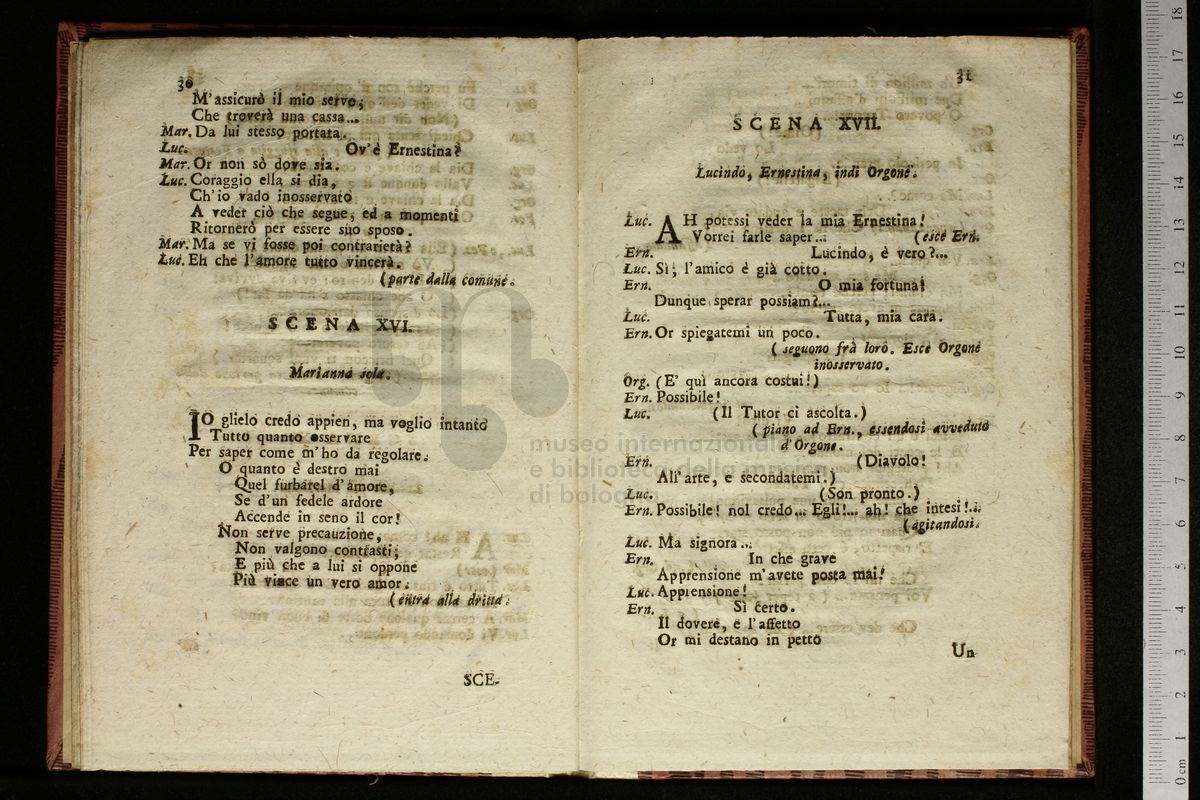 30
M'assicurò il mio servo,
Che troverà una cassa...
Mar. Da lui stesso portata.
Luc. Ov'è Ernestina?
Mar. Or non sò dove sia.
Luc. Coraggio ella si dia,
Ch'io vado inosservato
A veder ciò che segue, ed a momenti
Ritornerò per essere suo sposo.
Mar. Ma se vi fosse poi contrarietà?
Luc. Eh che l'amore tutto vincerà.
(parte dalla comune.
SCENA XVI.
Marianna sola.
IO glielo credo appien, ma voglio intanto
Tutto quanto osservare
Per saper come m'ho da regolare.
O quanto è destro mai
Quel furbarel d'amore,
Se d'un fedele ardore
Accende in seno il cor!
Non serve precauzione,
Non valgono contrasti;
E più che a lui si oppone
Più vince un vero amor.
(entra alla dritta.
SCE-
31
SCENA XVII.
Lucindo, Ernestina, indi Orgone.
Luc. AH potessi veder la mia Ernestina!
Vorrei farle saper... (esce Ern.
Ern. Lucindo, è vero?...
Luc. Sì; l'amico è già cotto.
Ern. O mia fortuna!
Dunque sperar possiam?...
Luc. Tutta, mia cara.
Ern. Or spiegatemi un poco.
(seguono frà loro. Esce Orgone
inosservato.
Org. (E' quì ancora costui!)
Ern. Possibile!
Luc. (Il Tutor ci ascolta.)
(piano ad Ern., essendosi avveduto
d'Orgone.
Ern. (Diavolo!
All'arte, e secondatemi.)
Luc. (Son pronto.)
Ern. Possibile! nol credo... Egli!... ah! che intesi!...
(agitandosi.
Luc. Ma signora...
Ern. In che grave
Apprensione m'avete posta mai!
Luc. Apprensione!
Ern. Sì certo.
Il dovere, e l'affetto
Or mi destano in petto
Un
museo internazionale
e biblioteca della musica
di bologna
0 cm 1 2 3 4 5 6 7 8 9 10 11 12 13 14 15 16 17 18